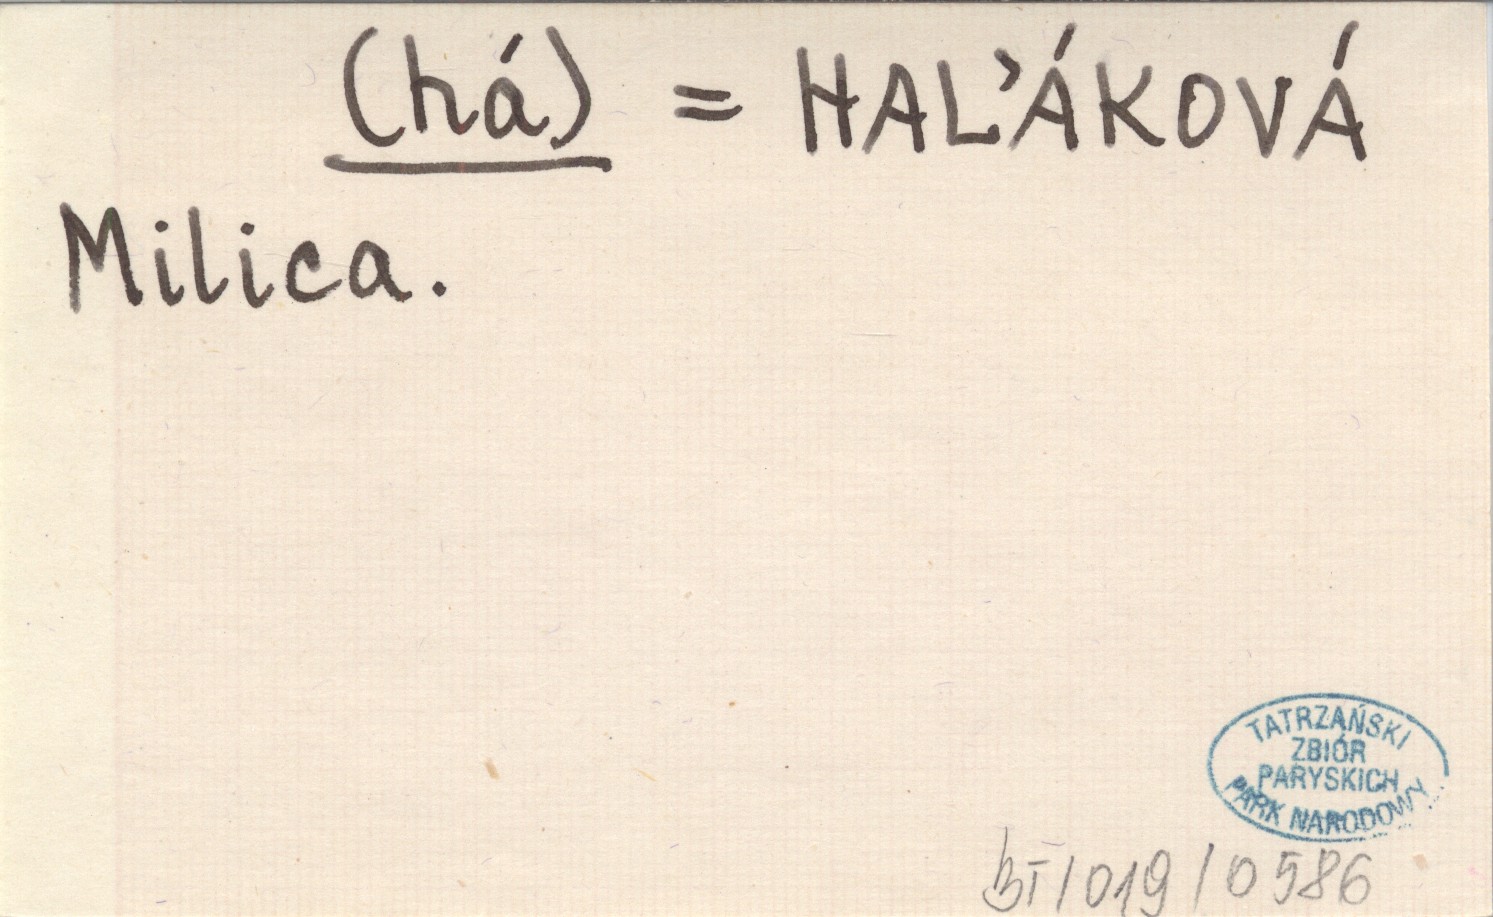 (há) = HAĽÁKOVÁ
Milica.
TATRZAŃSKI
ZBIÓR
PARYSKICH
PARK NARODOWY
BT/019/0586